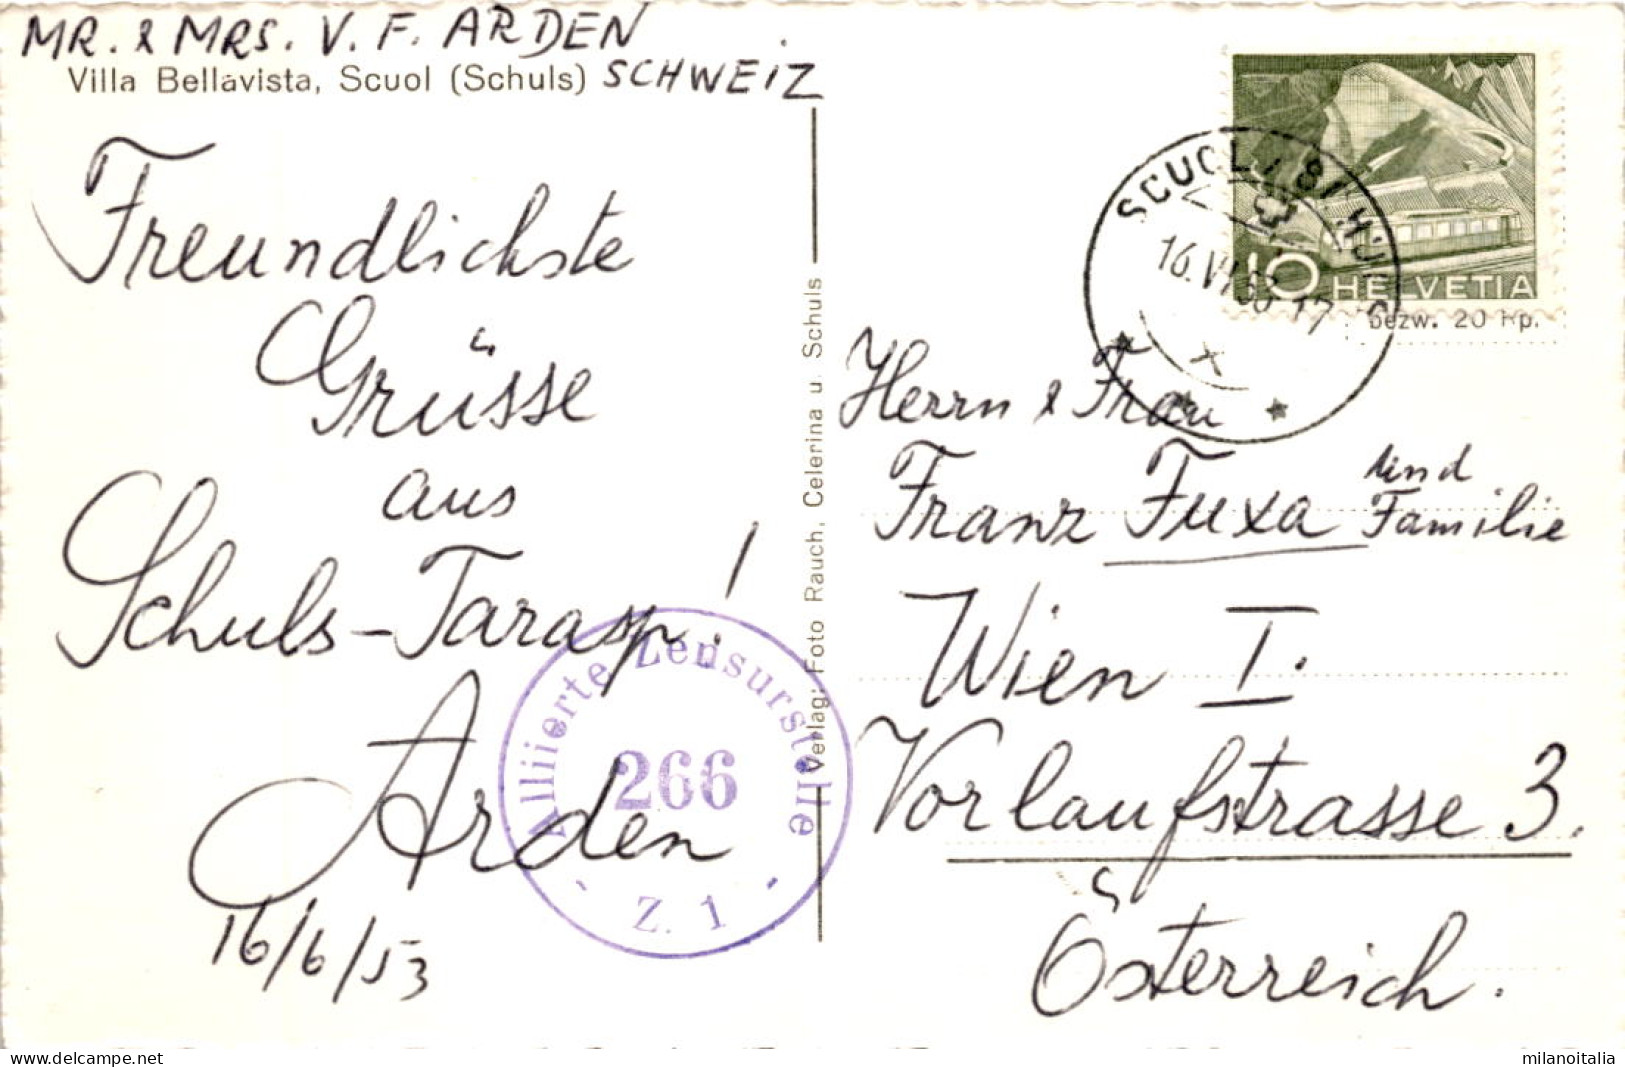 MR. & MRS. V. F. ARDEN
Villa Bellavista, Scuol (Schuls) SCHWEIZ
Freundlichste
Grüsse
aus
Schuls-Tarasp!
Arden
16/6/53
Alliierte Zensurstelle
266
- Z. 1 -
Verlag: Foto Rauch, Celerina u. Schuls
10 HELVETIA
bezw. 20 Rp.
SCUOL / SCHULS
16.VI.53 17
Herrn & Frau
Franz Fuxa und Familie
Wien I.
Vorlaufstrasse 3.
Österreich.
© milanoitalia.delcampe.net
milanoitalia